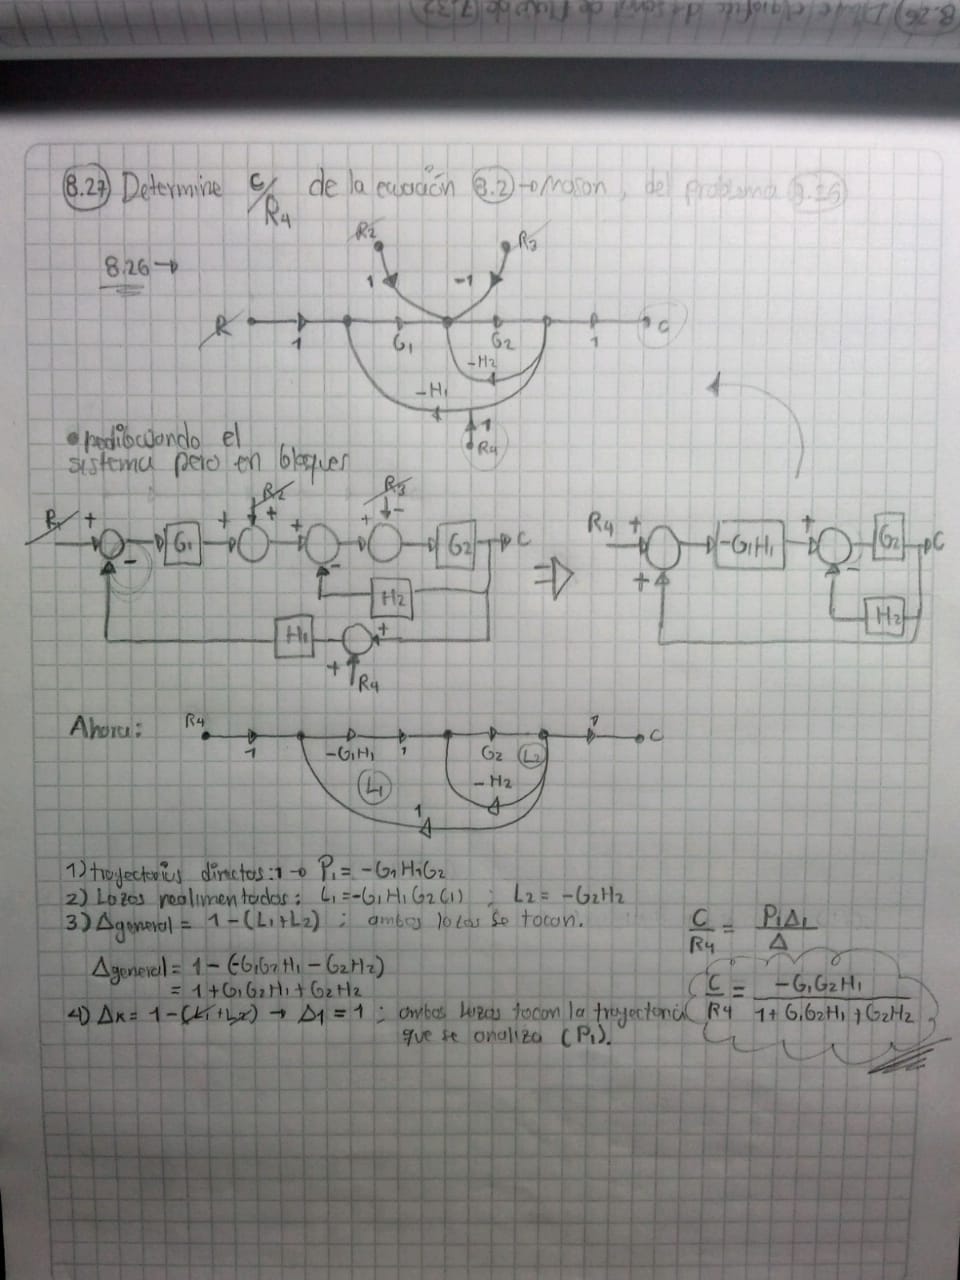 8.26) de flujo de 7.32
8.27 Determine C/R4 de la ecuación 8.2 → mason, del problema 8.26
R2 R3
8.26 →
1 -1
R 1 G1 G2 1 C
-H2
-H1
1
R4
• redibujando el
sistema pero en bloques
R2 R3
R1 + - G1 + + + - + - G2 C
H2
H1 + +
R4
⇒
R4 + + -G1H1 + - G2 C
H2
Ahora: R4 1 -G1H1 1 G2 L2 1 C
-H2
L1
1
1) trayectorias directas: 1 → P1 = -G1H1G2
2) Lazos realimentados: L1 = -G1H1G2(1) ; L2 = -G2H2
3) Δgeneral = 1-(L1+L2) ; ambos lazos se tocan.
Δgeneral = 1-(-G1G2H1 - G2H2)
= 1+G1G2H1+G2H2
4) Δk = 1-(L1+L2) → Δ1 = 1 ; ambos lazos tocan la trayectoria
que se analiza (P1).
C/R4 = P1Δ1/Δ
C/R4 = -G1G2H1/1+G1G2H1+G2H2